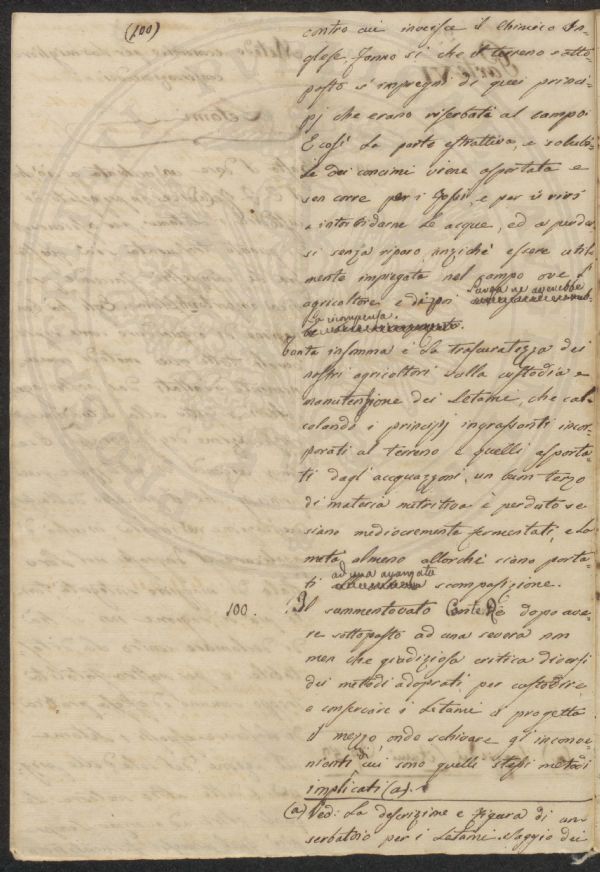 (100)
contro cui inveisce il Chimico In-
glese fanno sì che il terreno sotto-
posto s'impregni di quei princi-
pj che erano riserbati al campo:
E così la parte estrattiva, e solubi-
le dei concimi viene asportata e
sen corre per i fossi e per i rivi
a intorbidarne le acque, ed a perder-
si senza riparo, anziché essere util-
mente impiegata nel campo ove l'
agricoltore, e dipoi larga ne avrebbe
la ricompensa.
Tanta insomma è la trascuratezza dei
nostri agricoltori sulla custodia e
manutenzione dei Letame, che cal-
colando i principj ingrassanti incor-
porati al terreno e quelli asporta-
ti dagl'acquazzoni, un buon terzo
di materia nutritiva è perduto se
siano mediocremente fermentati, e la
metà almeno allorché siano porta-
ti ad una avanzata scomposizione.
100. Il summentovato Conte Rè dopo ave-
re sottoposto ad una severa non
men che giudiziosa critica diversi
dei metodi adoprati per custodire
e conservare i Letami progetta
il mezzo onde schivare gl'inconve-
nienti di cui sono quelli stessi metodi
implicati (a).
(a) Vedi: La descrizione e Figura di un
serbatoio per i Letami. Saggio dei